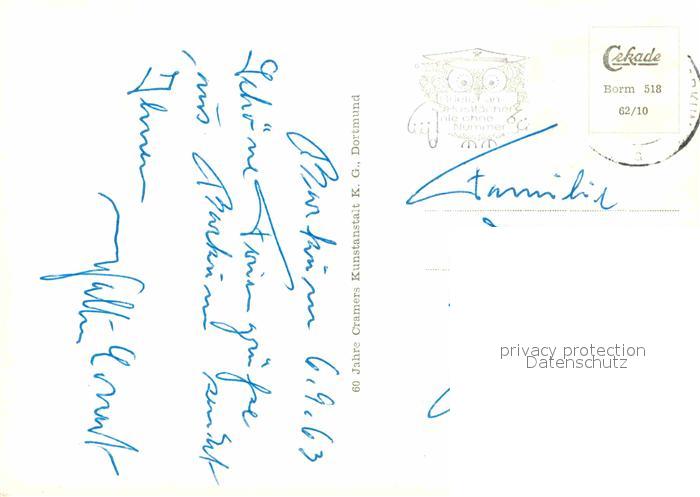 Borkum 6.9.63
Schöne Feriengrüße
aus Borkum sendet
Ihnen
60 Jahre Cramers Kunstanstalt K. G., Dortmund
Briefe an
Postfächer
nie ohne
Nummer
Cekade
Borm 518
62/10
Familie
privacy protection
Datenschutz